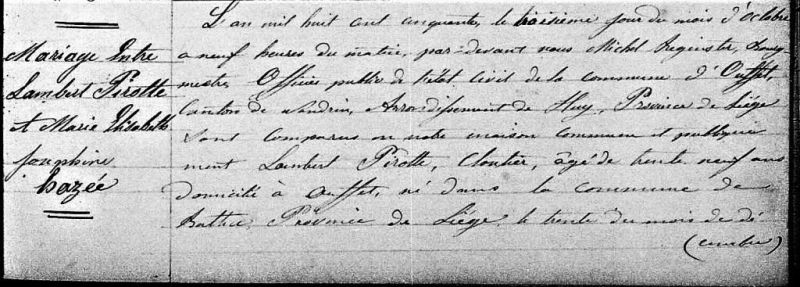 Mariage Entre
Lambert Pirotte
et Marie Elisabeth
Josephine
hazée
L'an mil huit cent cinquante, le troisieme jour du mois d'Octobre
a neuf heures du matin, par-devant nous Michel Bourg
mestre, Officier public de l'état civil de la commune d'Ouffet,
Canton de Nandrin, Arrondissement de Huy, Province de Liége
sont comparus en notre maison commune et publique
ment Lambert Pirotte, Cloutier, âgé de trente neuf ans
domicilié à Ouffet, né dans la commune de
Battice, Province de Liége, le trente du mois de dé
(cembre)